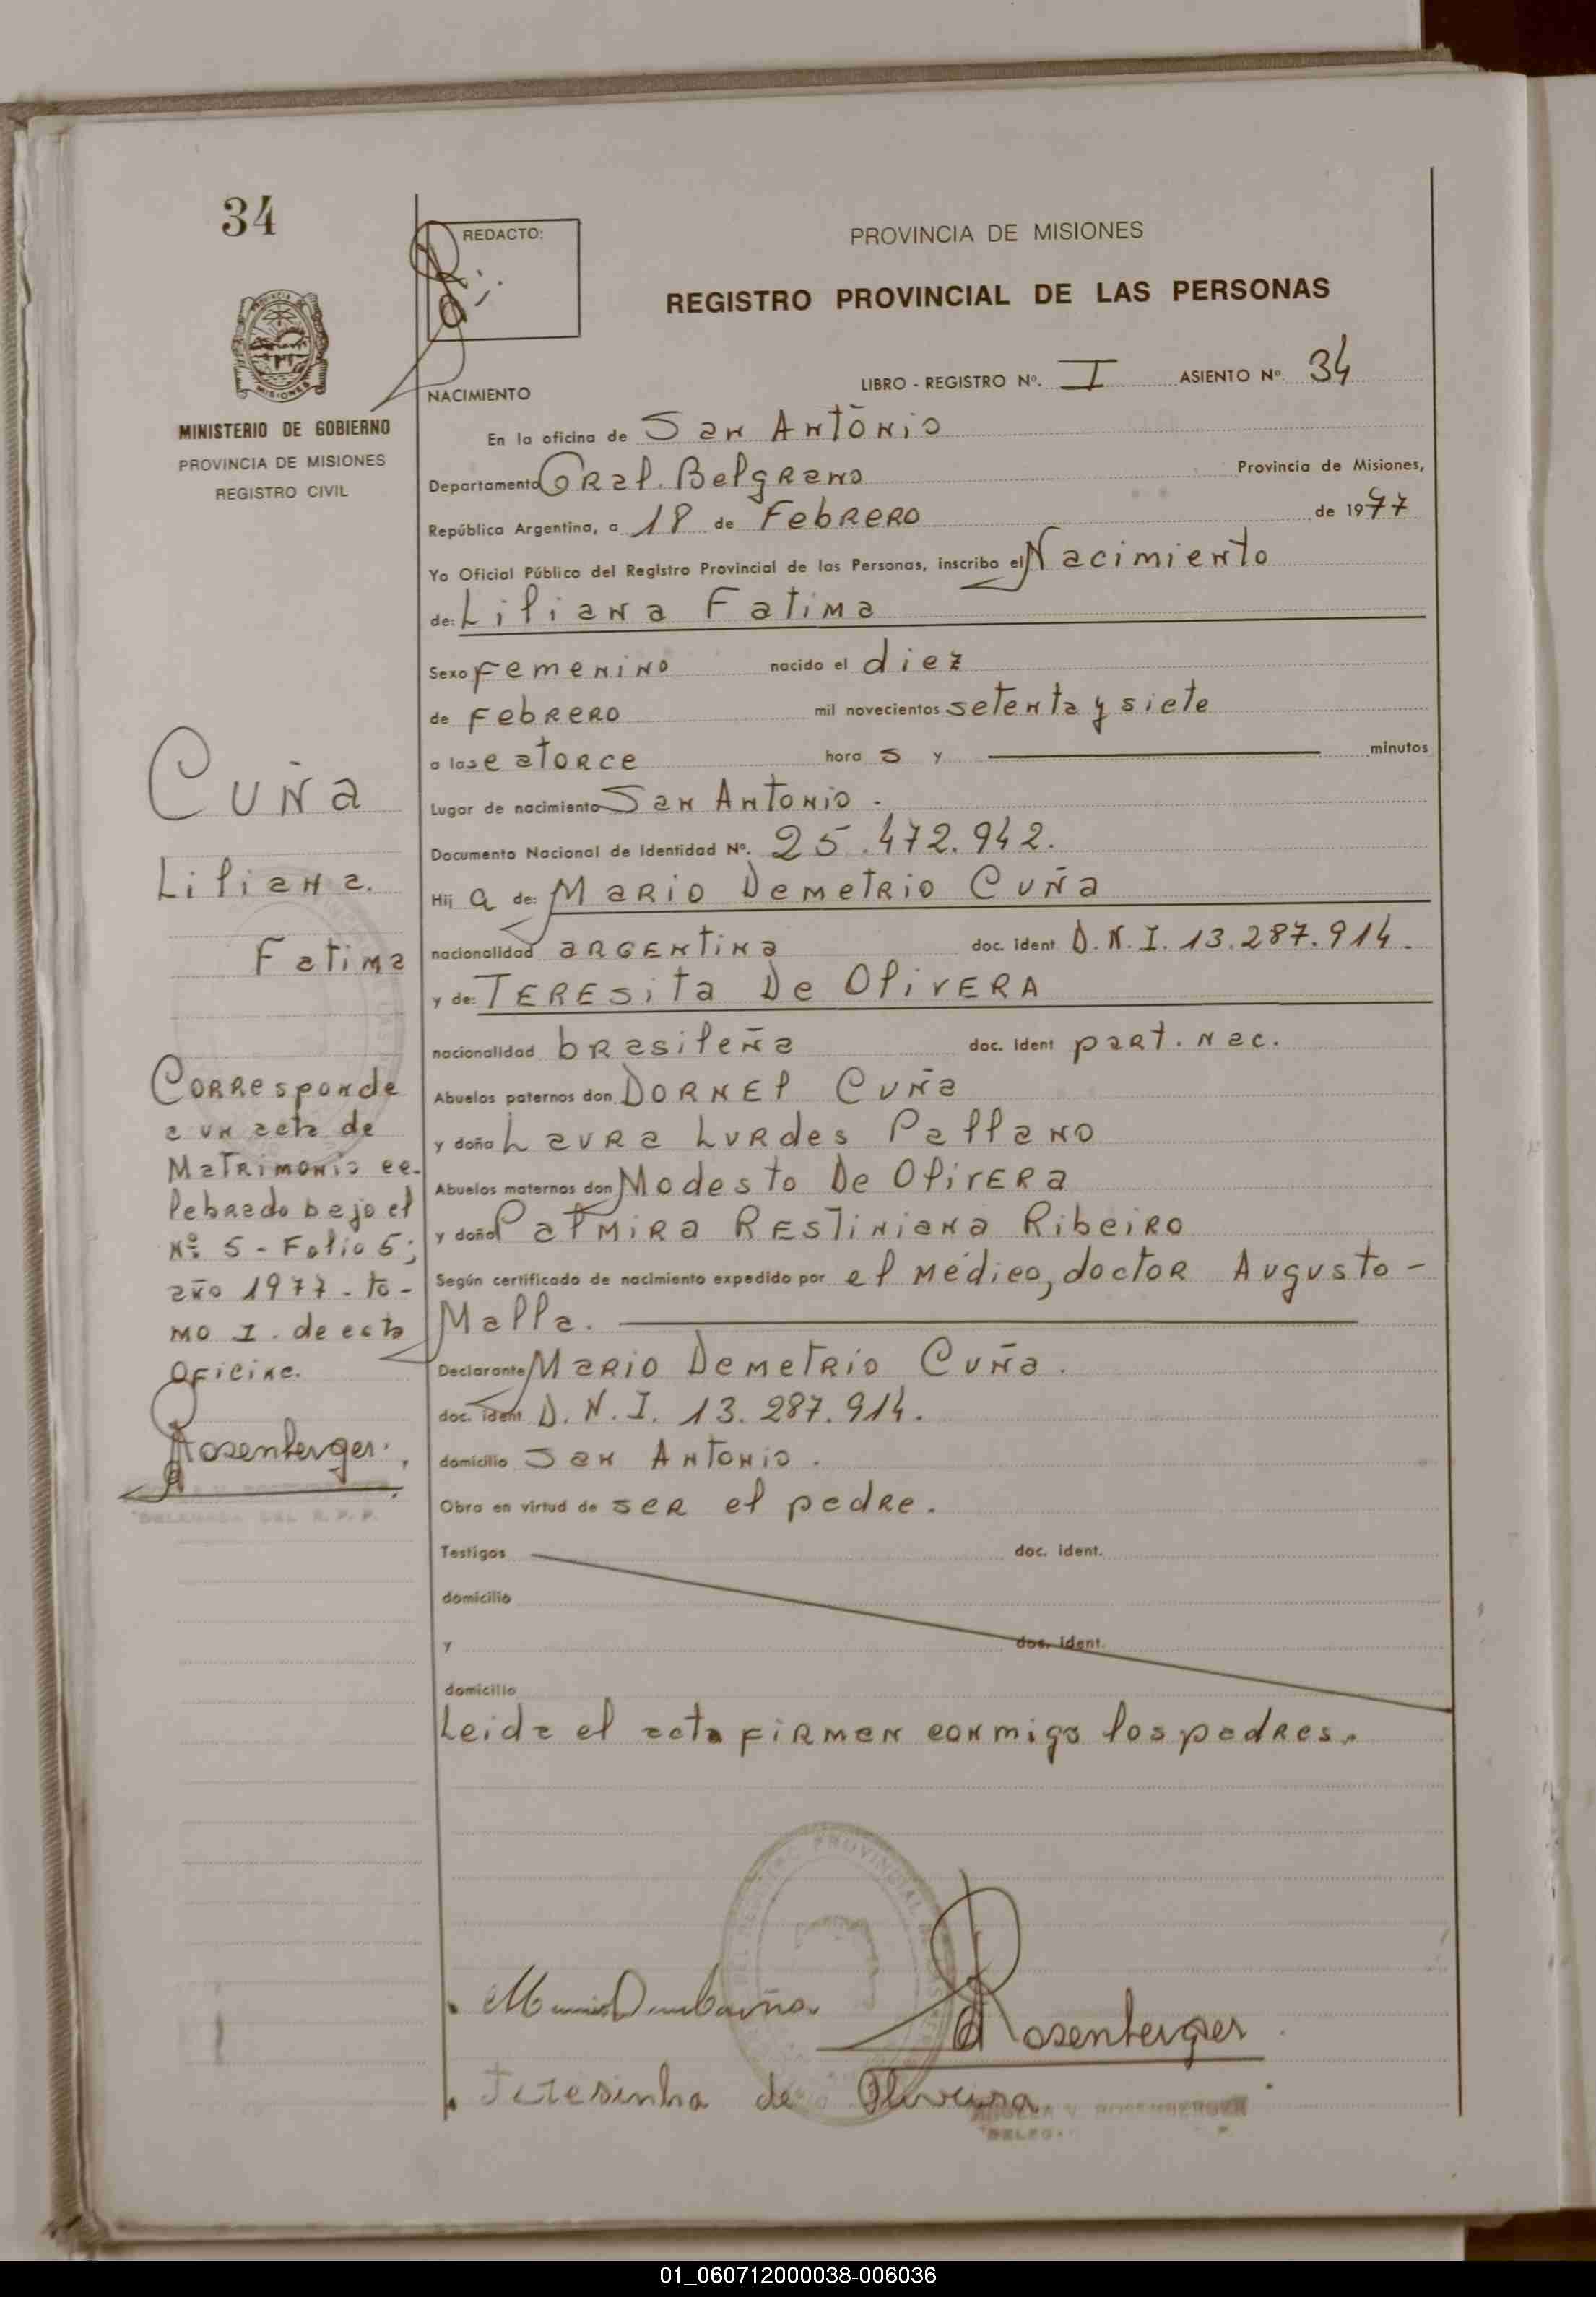 34
REDACTO:
PROVINCIA DE MISIONES
REGISTRO PROVINCIAL DE LAS PERSONAS
PROVINCIA DE
MISIONES
MINISTERIO DE GOBIERNO
PROVINCIA DE MISIONES
REGISTRO CIVIL
LIBRO - REGISTRO Nº. I ASIENTO Nº. 34
NACIMIENTO
En la oficina de San Antonio
Departamento Gral. Belgrano Provincia de Misiones,
República Argentina, a 18 de Febrero de 1977
Yo Oficial Público del Registro Provincial de las Personas, inscribo el Nacimiento
de: Liliana Fatima
Sexo Femenino nacido el diez
de Febrero mil novecientos setenta y siete
a las catorce hora s y minutos
Lugar de nacimiento San Antonio.
Documento Nacional de Identidad Nº. 25.472.942.
Hij a de: Mario Demetrio Cuña
nacionalidad argentina doc. ident D.N.I. 13.287.914.
y de: Teresita De Olivera
nacionalidad brasileña doc. ident part. nac.
Abuelos paternos don Dornel Cuña
y doña Laura Lurdes Pallano
Abuelos maternos don Modesto De Olivera
y doña Palmira Restiniana Ribeiro
Según certificado de nacimiento expedido por el médico, doctor Augusto -
Malla.
Declarante Mario Demetrio Cuña.
doc. ident D.N.I. 13.287.914.
domicilio San Antonio.
Obra en virtud de ser el padre.
Testigos doc. ident.
domicilio
y doc. ident.
domicilio
Leida el acta firman conmigo los padres.
Cuña
Liliana.
Fatima
Corresponde
a un acta de
Matrimonio ce-
lebrado bajo el
Nº 5 - Folio 5;
año 1977 - to-
mo I. de esta
Oficina.
Rosenberger.
DELEGADA DEL R. P. P.
Rosenberger
Teresinha de Oliveira
ANGELA V. ROSENBERGER
01_060712000038-006036